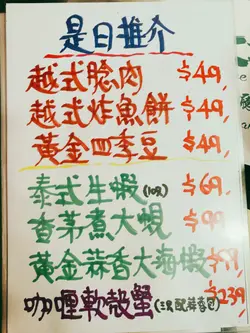 是日推介
越式腍肉 $49
越式炸魚餅 $49
黃金四季豆 $49
泰式生蝦(10只) $69
香茅煮大蜆 $99
黃金蒜香大海蝦
咖喱軟殼蟹 $239